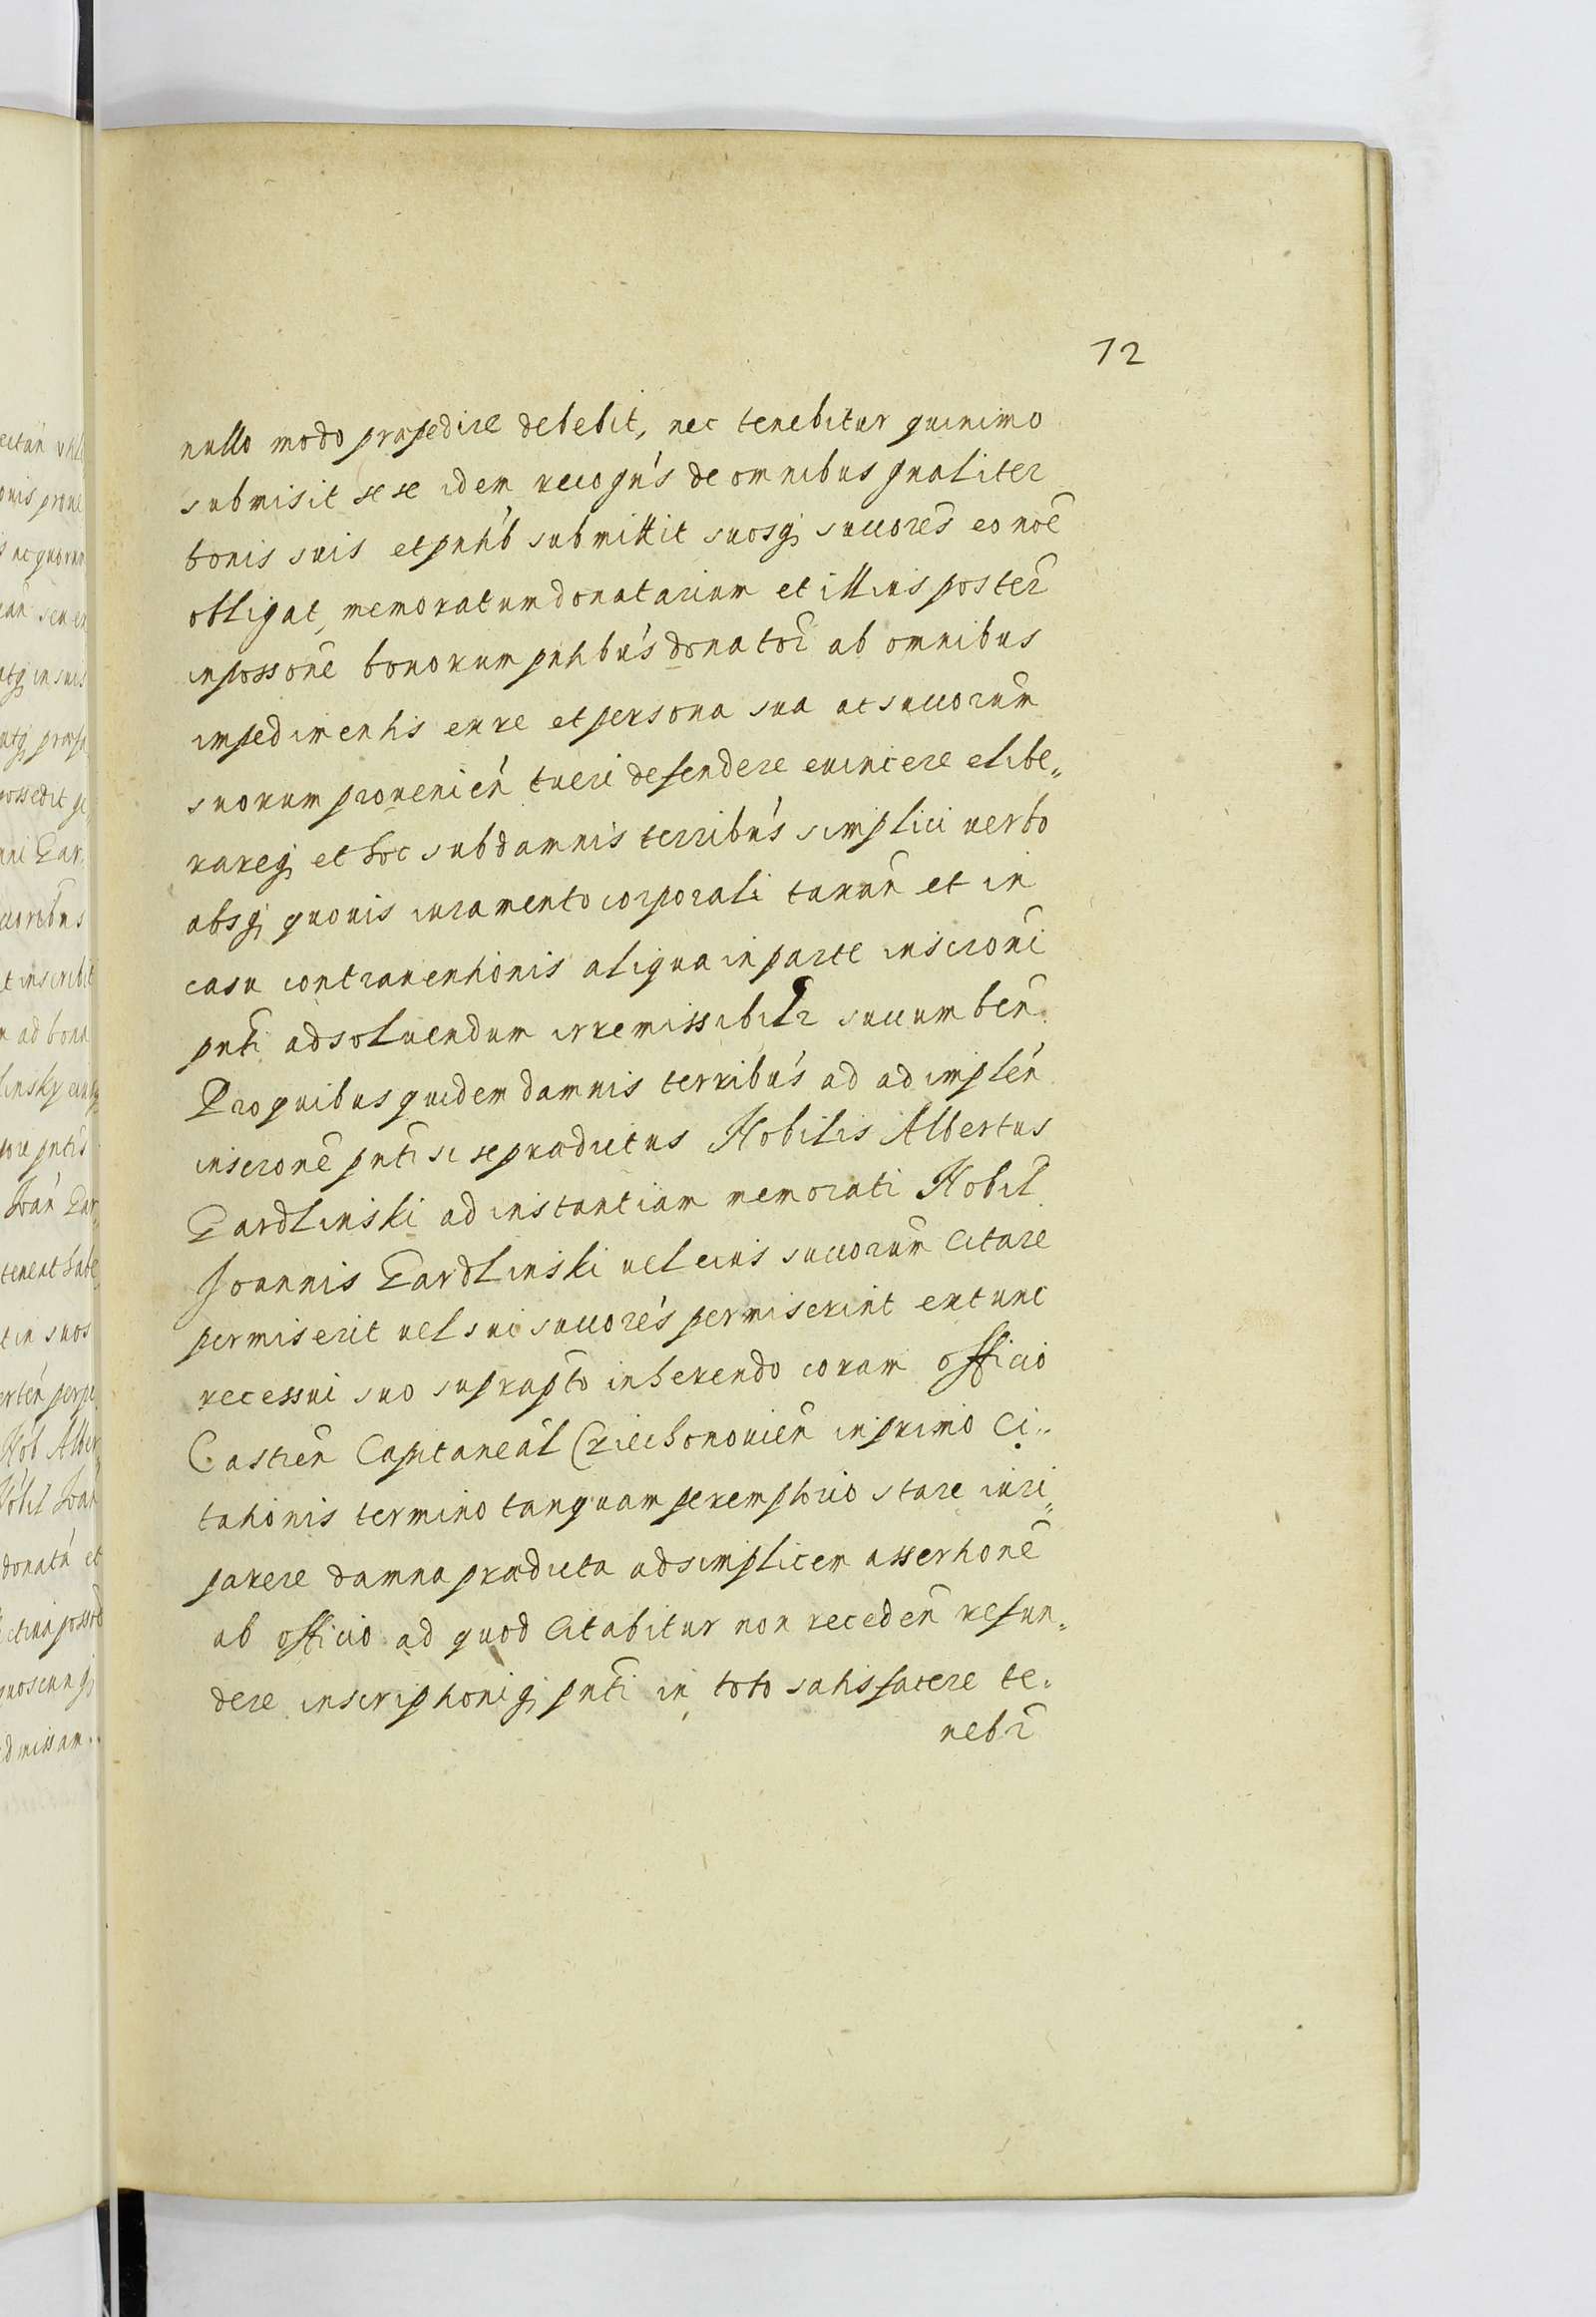 72
nullo modo præpedire debebit, nec tenebitur quinimo
submisit se se idem recogń́s de omnibus gnaliter
bonis suis et pntib́ submittit suosq; succores̄ eo noē
obligat, memoratum donatarium et illius poster̄
in possōne bonorum pntibuś donator̄ ab omnibus
impedimentis ex re et persona sua ac succorum̄
suorum proueniēn tueri defendere euincere elibe„
rareq; et hoc sub damnis terribuś simplici uerbo
absq; quouis iuramento corporali taxan̄ et in
casu contrauentionis aliqua in parte inscronī
pntī ad soluendum irremissibilr̄ succumben̄
Pro quibus quidem damnis terribuś ad adimplen̄
inscronē pntī si se prædictus Nobilis Albertus
Gardlinski ad instantiam memorati Nobil̄
Joannis Gardlinski uel eius succorum̄ citare
permiserit uel sui succoreś permiserint extunc
recessui suo suprapto̅ inherendo coram officio
Castren̄ Capitaneal̄ Cziechonouien̄ in primo Ci„
tationis termino tanquam peremptorio stare iuri„
parere damna prædicta ad simplicem assertionē
ab officio ad quod citabitur non receden̄ refun„
dere inscriptioniq; pntī in toto satisfacere te„
nebr̄